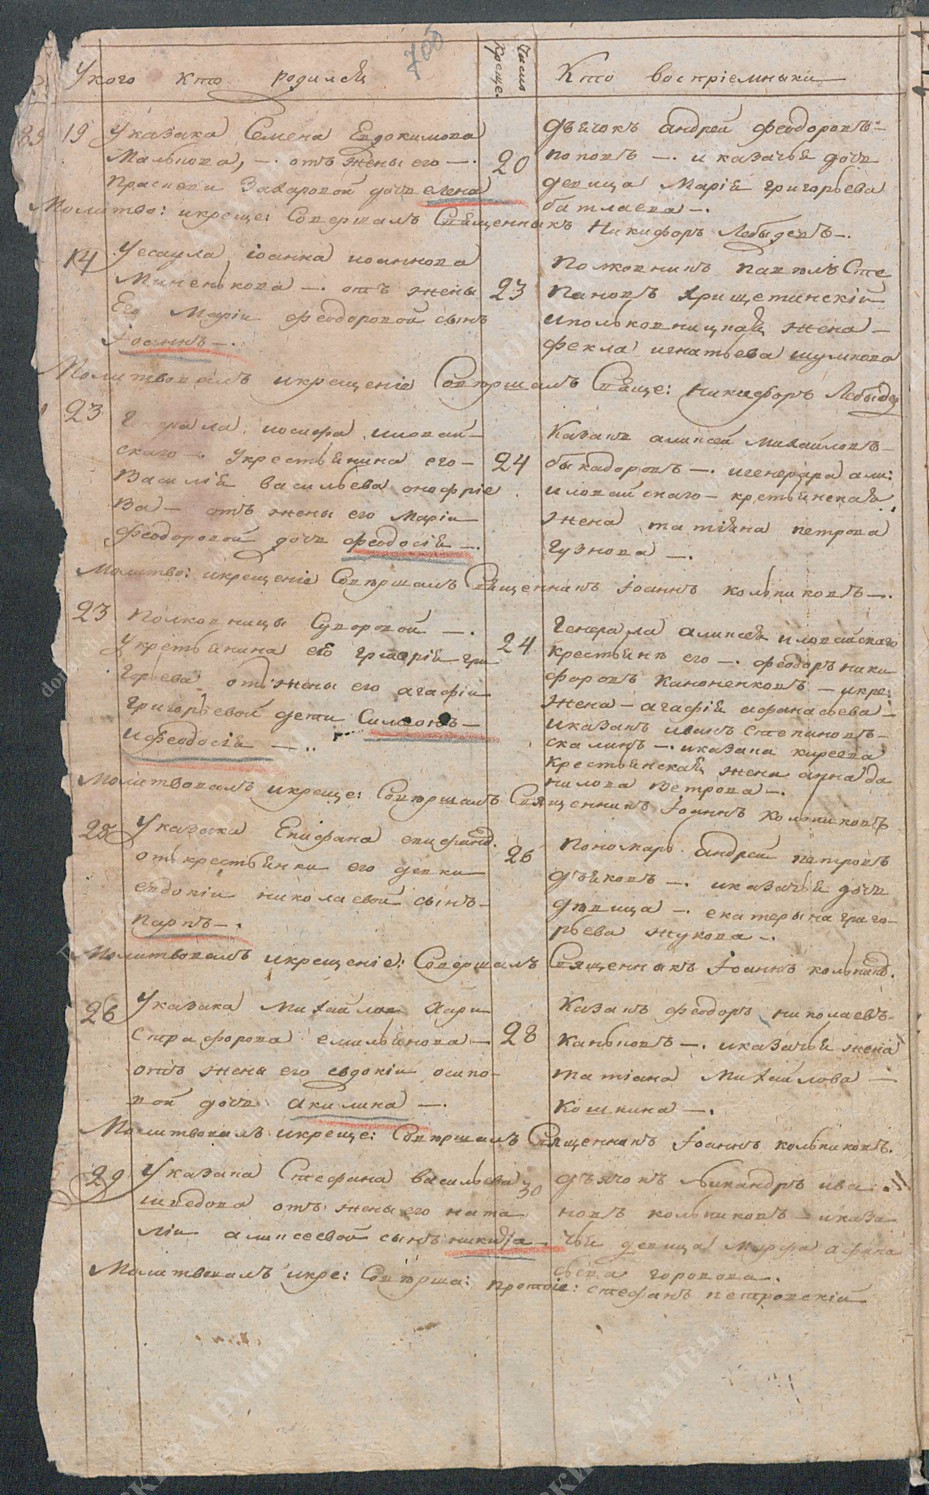 700
У кого кто родился
Число креще.
Кто восприемники
89 19 У казака Семена Евдокимова
Мальнова, —. отъ жены его —.
Праскевы Захаровой дочь елена
20
дьячокъ андрей феодоровъ
поповъ —. и казачья дочь
девица Мария григорьева
батлаева —.
Молитво: икреще: Совершалъ Священникъ Никифоръ Лебедевъ —.
14 У есаула iоанна иоаннова
Миненкова —. отъ жены
Его Марiи феодоровой сынъ
Iоаннъ —.
23
Полковникъ павелъ Сте
пановъ Хрищетинскiй
и полковницкая жена —
фекла игнатьева шумкова
Молитвовалъ икрещенiе Совершалъ Свяще: Никифоръ Лебеде
23
Генерала иосифа иловай
скаго —. У крестьянина его —
Василiя васильева онофрiе
ва — отъ жены его Марiи
феодоровой дочь феодосiя —.
24
Казакъ алексей Михайловъ
быкадоровъ —. игенерала али:
иловайскаго — крестьянская
жена татiана петрова
гузнова —.
Молитво: икрещенiе Совершалъ Священникъ Iоаннъ кольпиковъ —.
23 Полковницы Суворовой —.
У крестьянина её григорiя гри
горьева отъ жены его агафiи
григорьевой дети Симеонъ —
и феодосiя —..
24
Генерала алексея иловайскаго
крестьянъ его —. феодоръ ники
форовъ Каноненковъ — икре:
жена — агафiя афанасьева —
иказакъ иванъ Степановъ —
скалинъ —. иказака киреева
крестьянская жена анна да
нилова петрова —.
Молитвовалъ икреще: Совершалъ Священникъ Iоаннъ кольпиковъ
У казака Епифана епифано.
отъ крестьянки его девки
евдокiи николаевой сынъ —
карпъ —.
26
Пономарь андрей петровъ
дьяковъ —. иказачья дочь
девица —. екатерина григо
рьева жукова —.
Молитвовалъ икрещенiе: Совершалъ Священникъ Iоаннъ кольпико.
26 У казака Михайла Хари
страфорова емильянова —
отъ жены его евдокiи осипо
вой дочь акилина —.
28
Казакъ феодоръ николаевъ
каньковъ —. иказачья жена
татiана Михайлова —
Кошкина —.
Молитвовалъ икреще: Совершалъ Священникъ Iоаннъ кольпиковъ.
29 У казака Стефана васильева
шведова отъ жены его ната
лiи алексеевой сынъ никита —
30
дьячокъ никандръ ива
новъ кольпиковъ — иказа
чья девица Марфа афана
сьева горохова.
Молитвовалъ икре: Соверша: протоiе: Стефанъ петровскiй